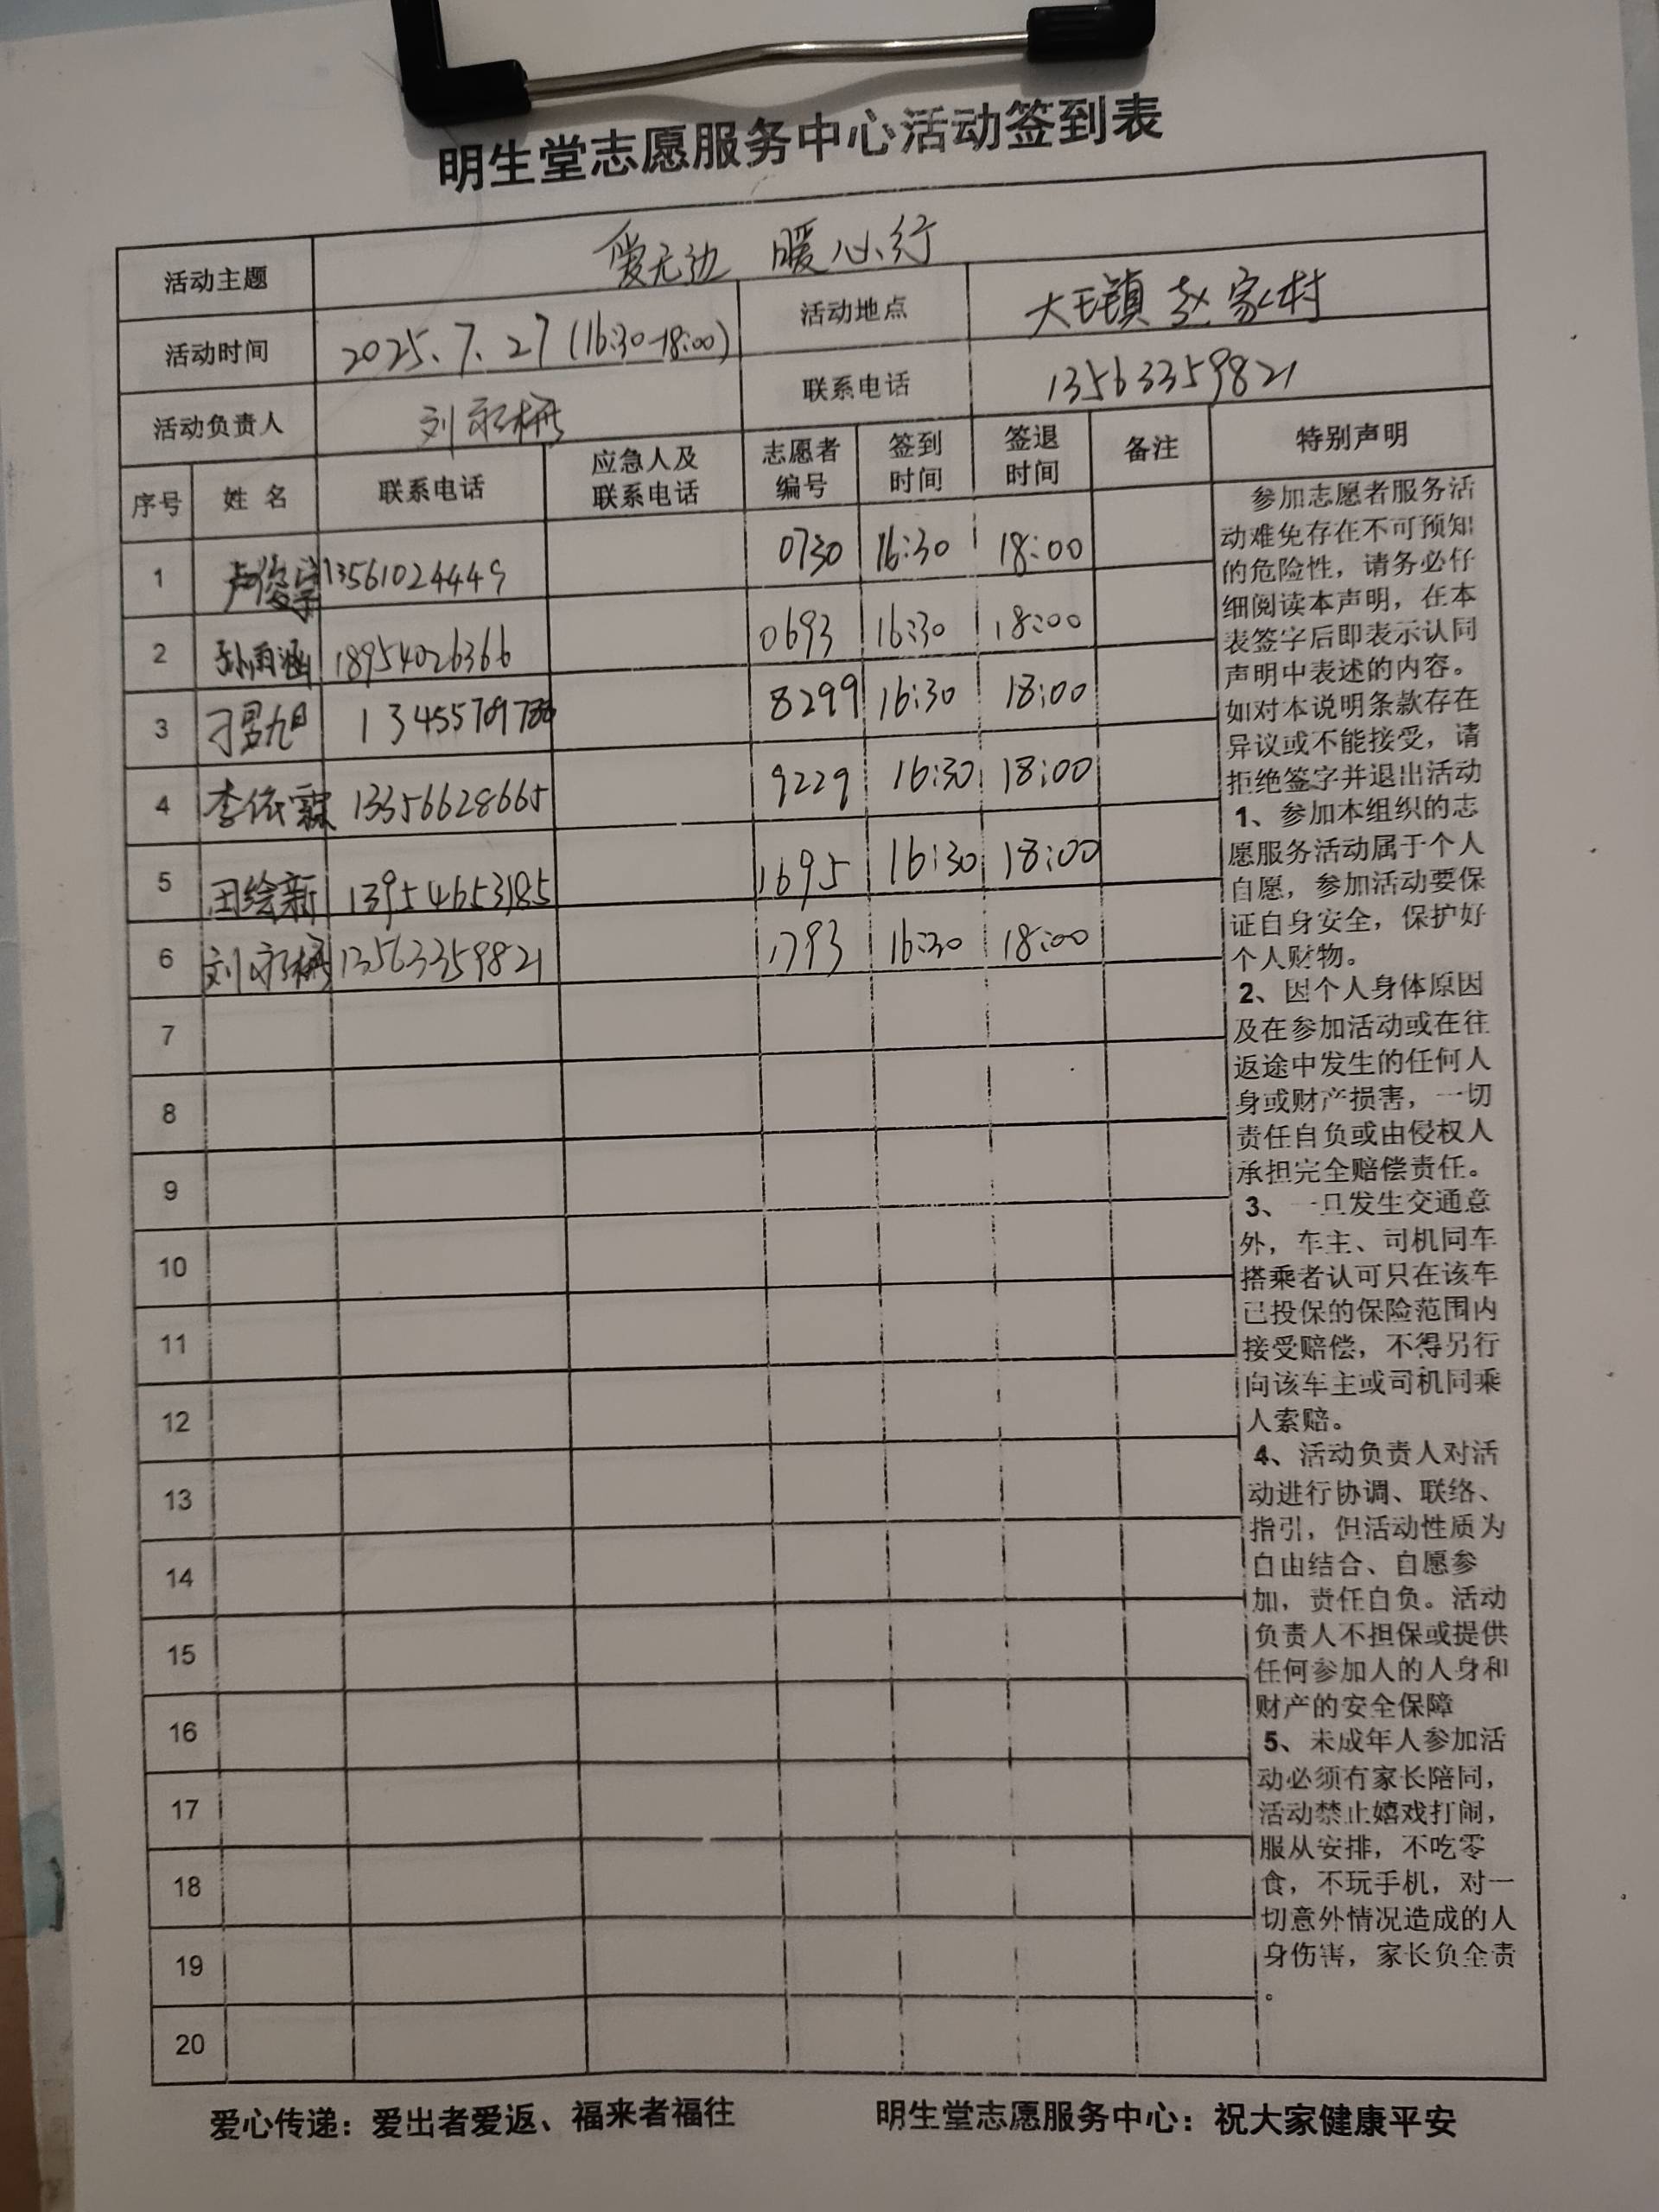 明生堂志愿服务中心活动签到表
活动主题 爱无边 暖心行
活动时间 2025.7.27(16:30-18:00) 活动地点 大王镇赵家村
活动负责人 刘永梅 联系电话 13563359821
序号 姓名 联系电话 应急人及联系电话 志愿者编号 签到时间 签退时间 备注 特别声明
1 卢俊宇 13561024449 0730 16:30 18:00
2 孙雨涵 18954026366 0693 16:30 18:00
3 刁昱旭 8299 16:30 18:00
4 李依霖 13356628665 9229 16:30 18:00
5 田绘新 13954653185 1695 16:30 18:00
6 刘永梅 13563359821 1793 16:30 18:00
7
8
9
10
11
12
13
14
15
16
17
18
19
20
参加志愿者服务活
动难免存在不可预知
的危险性，请务必仔
细阅读本声明，在本
表签字后即表示认同
声明中表述的内容。
如对本说明条款存在
异议或不能接受，请
拒绝签字并退出活动
1、参加本组织的志
愿服务活动属于个人
自愿，参加活动要保
证自身安全，保护好
个人财物。
2、因个人身体原因
及在参加活动或在往
返途中发生的任何人
身或财产损害，一切
责任自负或由侵权人
承担完全赔偿责任。
3、一旦发生交通意
外，车主、司机同车
搭乘者认可只在该车
已投保的保险范围内
接受赔偿，不得另行
向该车主或司机同乘
人索赔。
4、活动负责人对活
动进行协调、联络、
指引，但活动性质为
自由结合、自愿参
加，责任自负。活动
负责人不担保或提供
任何参加人的人身和
财产的安全保障
5、未成年人参加活
动必须有家长陪同，
活动禁止嬉戏打闹，
服从安排，不吃零
食，不玩手机，对一
切意外情况造成的人
身伤害，家长负全责
。
爱心传递：爱出者爱返、福来者福往 明生堂志愿服务中心：祝大家健康平安